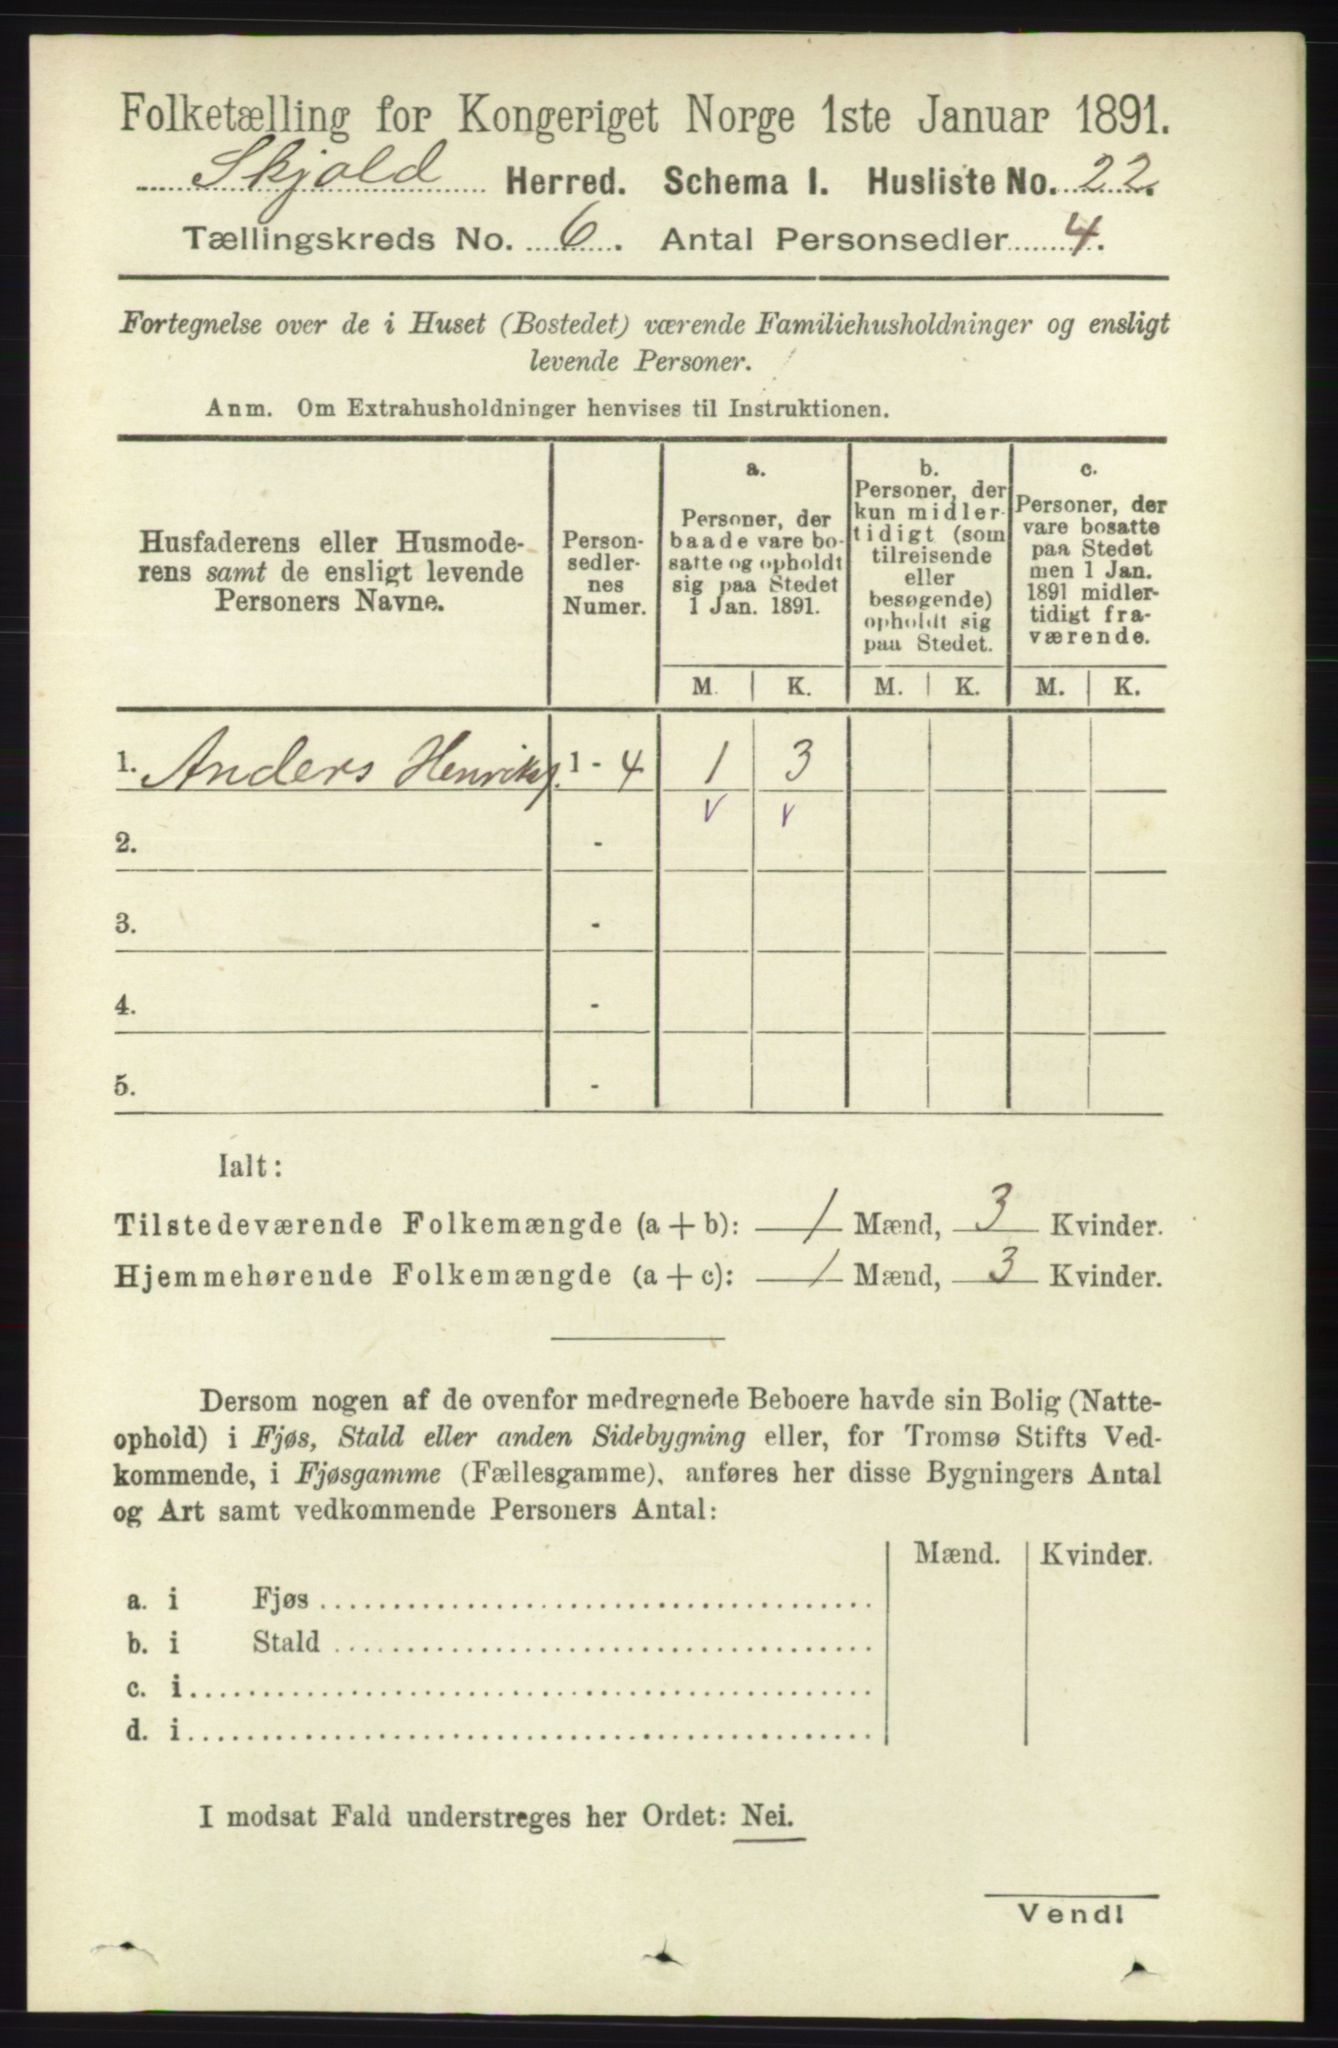 Folketælling for Kongeriget Norge 1ste Januar 1891.
Skjold Herred. Schema I. Husliste No. 22.
Tællingskreds No. 6. Antal Personsedler 4.
Fortegnelse over de i Huset (Bostedet) værende Familiehusholdninger og ensligt
levende Personer.
Anm. Om Extrahusholdninger henvises til Instruktionen.
Husfaderens eller Husmode-
rens samt de ensligt levende
Personers Navne.
Person-
sedler-
nes
Numer.
a.
Personer, der
baade vare bo-
satte og opholdt
sig paa Stedet
1 Jan. 1891.
b.
Personer, der
kun midler-
tidigt (som
tilreisende
eller
besøgende)
opholdt sig
paa Stedet.
c.
Personer, der
vare bosatte
paa Stedet
men 1 Jan.
1891 midler-
tidigt fra-
værende.
M. K. M. K. M. K.
1. Anders Henriks. 1 - 4 1 3
2. -
3. -
4. -
5. -
Ialt:
Tilstedeværende Folkemængde (a + b): 1 Mænd, 3 Kvinder.
Hjemmehørende Folkemængde (a + c): 1 Mænd, 3 Kvinder.
Dersom nogen af de ovenfor medregnede Beboere havde sin Bolig (Natte-
ophold) i Fjøs, Stald eller anden Sidebygning eller, for Tromsø Stifts Ved-
kommende, i Fjøsgamme (Fællesgamme), anføres her disse Bygningers Antal
og Art samt vedkommende Personers Antal:
Mænd. Kvinder.
a. i Fjøs
b. i Stald
c. i
d. i
I modsat Fald understreges her Ordet: Nei.
Vend!